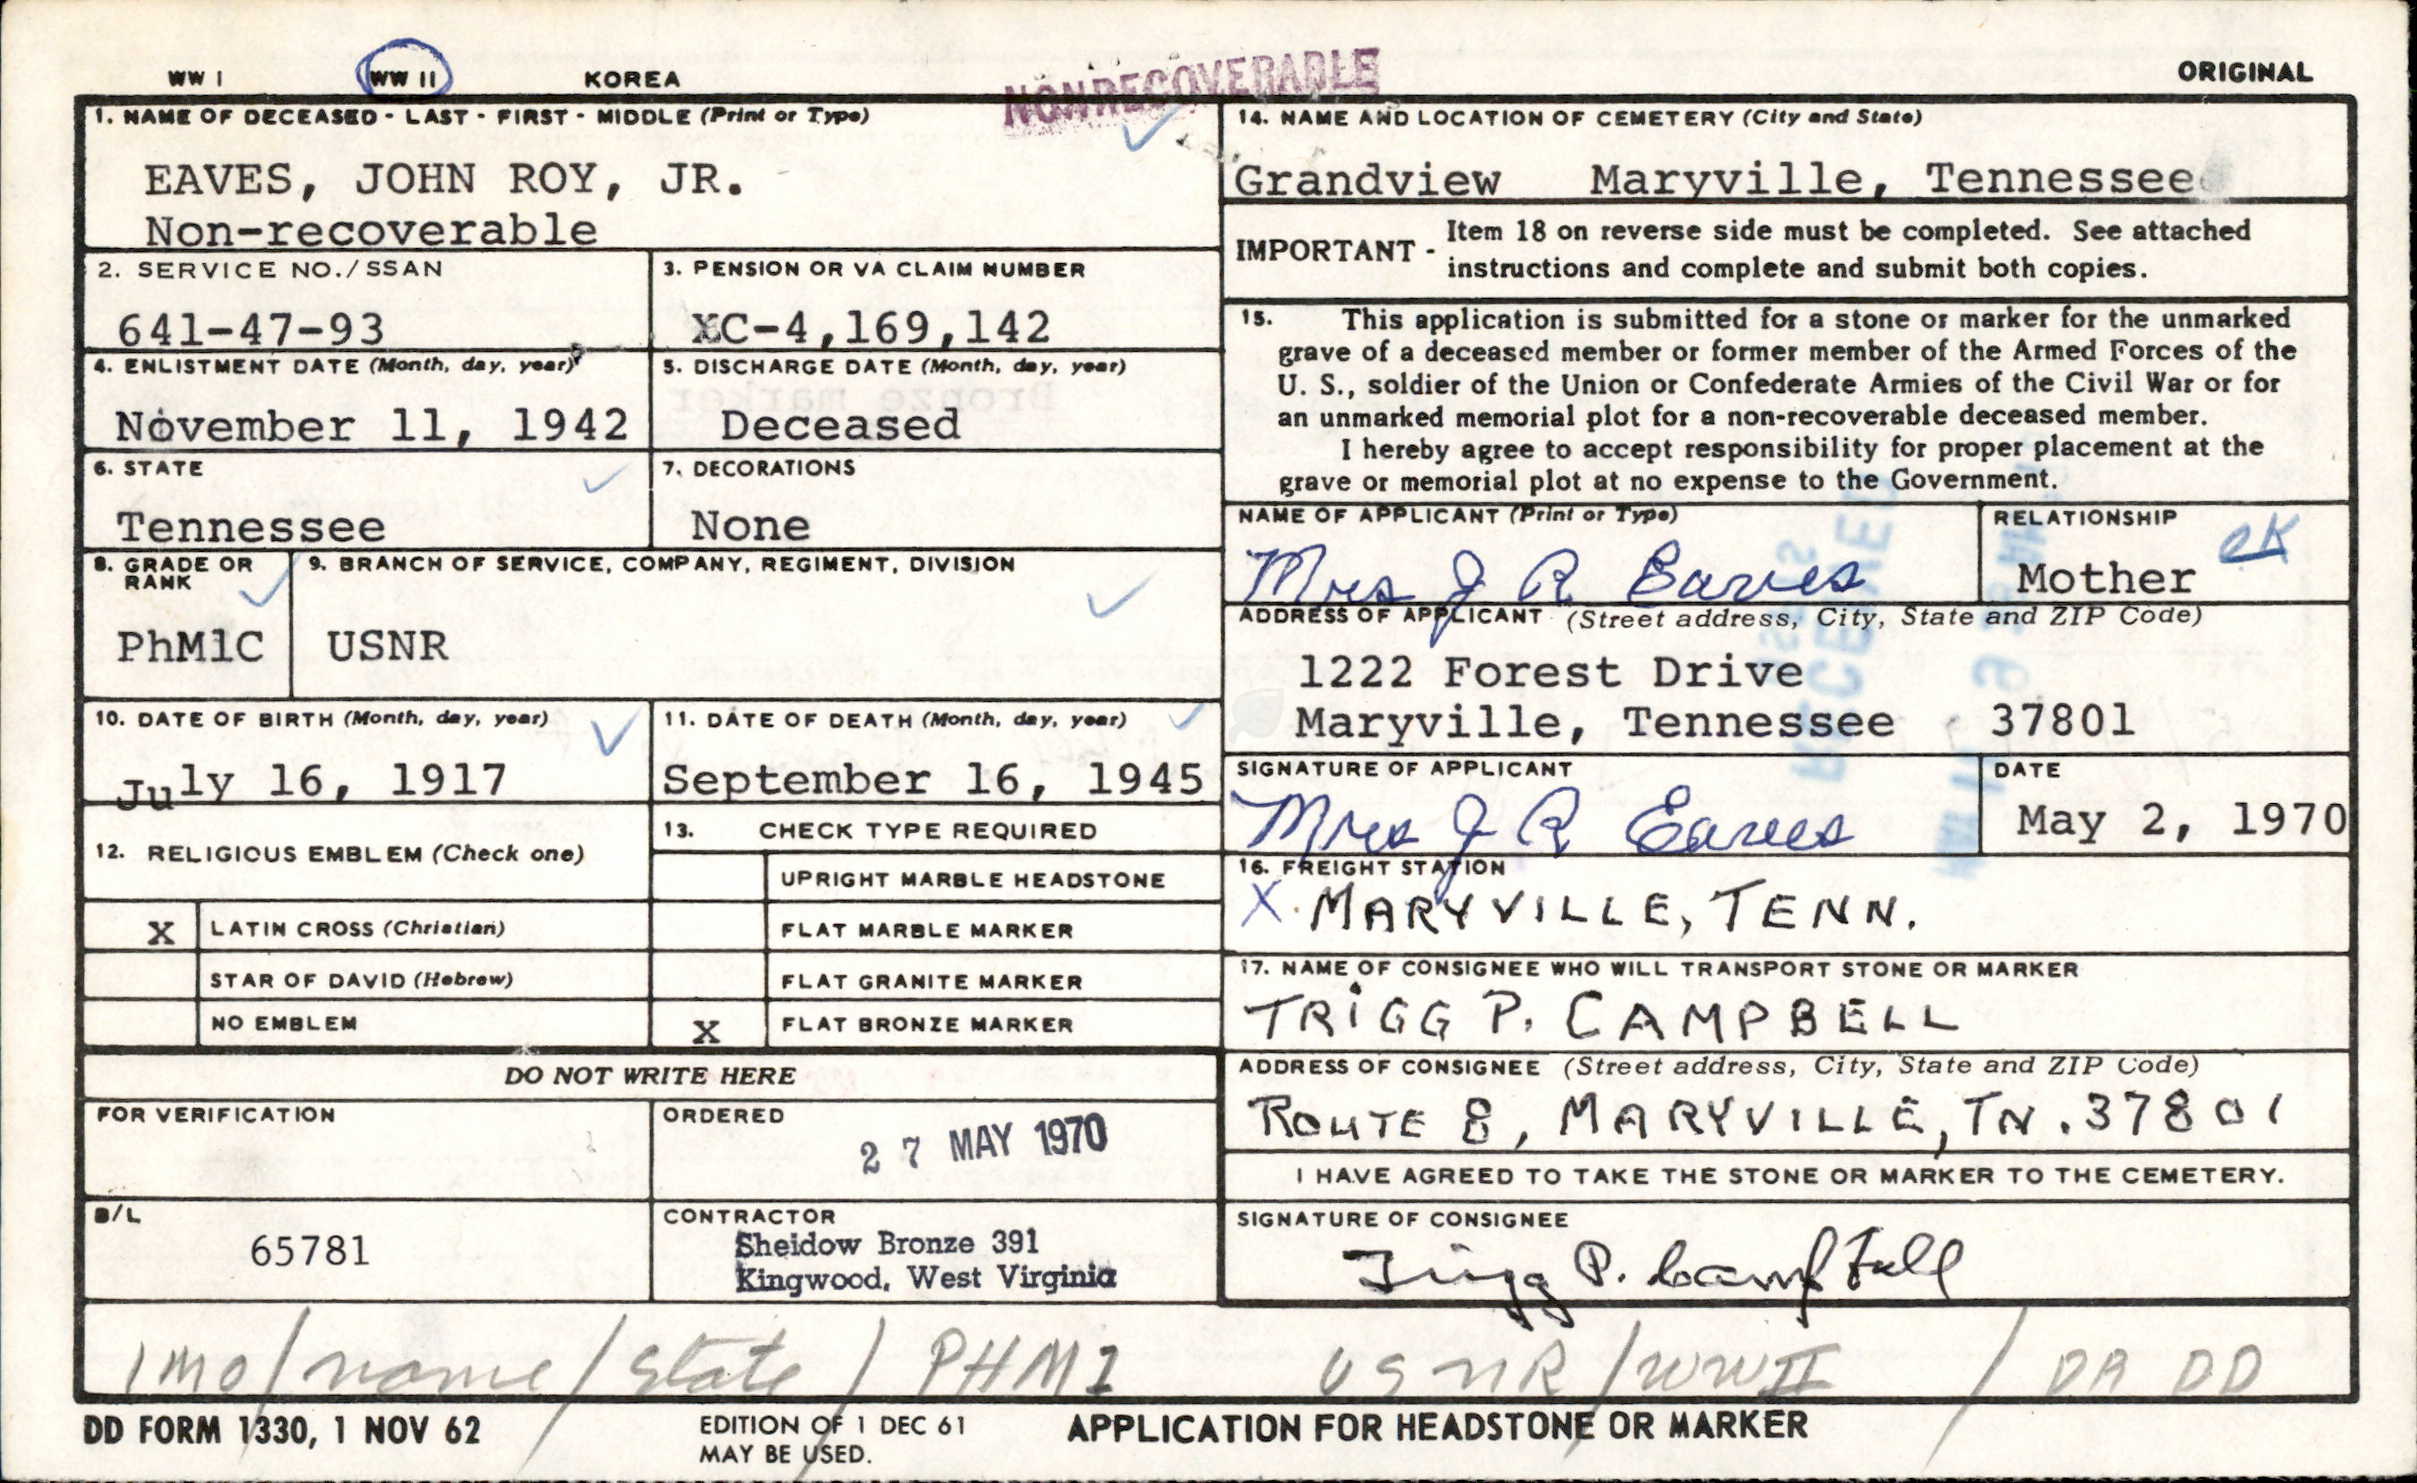 WW I WW II KOREA NONRECOVERABLE ORIGINAL
1. NAME OF DECEASED - LAST - FIRST - MIDDLE (Print or Type)
EAVES, JOHN ROY, JR.
Non-recoverable
2. SERVICE NO./SSAN
641-47-93
3. PENSION OR VA CLAIM NUMBER
XC-4,169,142
4. ENLISTMENT DATE (Month, day, year)
November 11, 1942
5. DISCHARGE DATE (Month, day, year)
Deceased
6. STATE
Tennessee
7. DECORATIONS
None
8. GRADE OR
RANK
PhM1C
9. BRANCH OF SERVICE, COMPANY, REGIMENT, DIVISION
USNR
10. DATE OF BIRTH (Month, day, year)
July 16, 1917
11. DATE OF DEATH (Month, day, year)
September 16, 1945
12. RELIGIOUS EMBLEM (Check one)
X LATIN CROSS (Christian)
STAR OF DAVID (Hebrew)
NO EMBLEM
13. CHECK TYPE REQUIRED
UPRIGHT MARBLE HEADSTONE
FLAT MARBLE MARKER
FLAT GRANITE MARKER
X FLAT BRONZE MARKER
DO NOT WRITE HERE
FOR VERIFICATION
ORDERED
27 MAY 1970
B/L
65781
CONTRACTOR
Sheidow Bronze 391
Kingwood, West Virginia
14. NAME AND LOCATION OF CEMETERY (City and State)
Grandview Maryville, Tennessee
IMPORTANT - Item 18 on reverse side must be completed. See attached
instructions and complete and submit both copies.
15. This application is submitted for a stone or marker for the unmarked
grave of a deceased member or former member of the Armed Forces of the
U. S., soldier of the Union or Confederate Armies of the Civil War or for
an unmarked memorial plot for a non-recoverable deceased member.
I hereby agree to accept responsibility for proper placement at the
grave or memorial plot at no expense to the Government.
NAME OF APPLICANT (Print or Type)
Mrs J R Eaves
RELATIONSHIP
Mother OK
ADDRESS OF APPLICANT (Street address, City, State and ZIP Code)
1222 Forest Drive
Maryville, Tennessee 37801
SIGNATURE OF APPLICANT
Mrs J R Eaves
DATE
May 2, 1970
16. FREIGHT STATION
X. MARYVILLE, TENN.
17. NAME OF CONSIGNEE WHO WILL TRANSPORT STONE OR MARKER
TRIGG P. CAMPBELL
ADDRESS OF CONSIGNEE (Street address, City, State and ZIP Code)
ROUTE 8, MARYVILLE, TN. 37801
I HAVE AGREED TO TAKE THE STONE OR MARKER TO THE CEMETERY.
SIGNATURE OF CONSIGNEE
Trigg P. Campbell
1 MO / name / State / PHM1 USNR / WWII / DA DD
DD FORM 1330, 1 NOV 62
EDITION OF 1 DEC 61
MAY BE USED.
APPLICATION FOR HEADSTONE OR MARKER